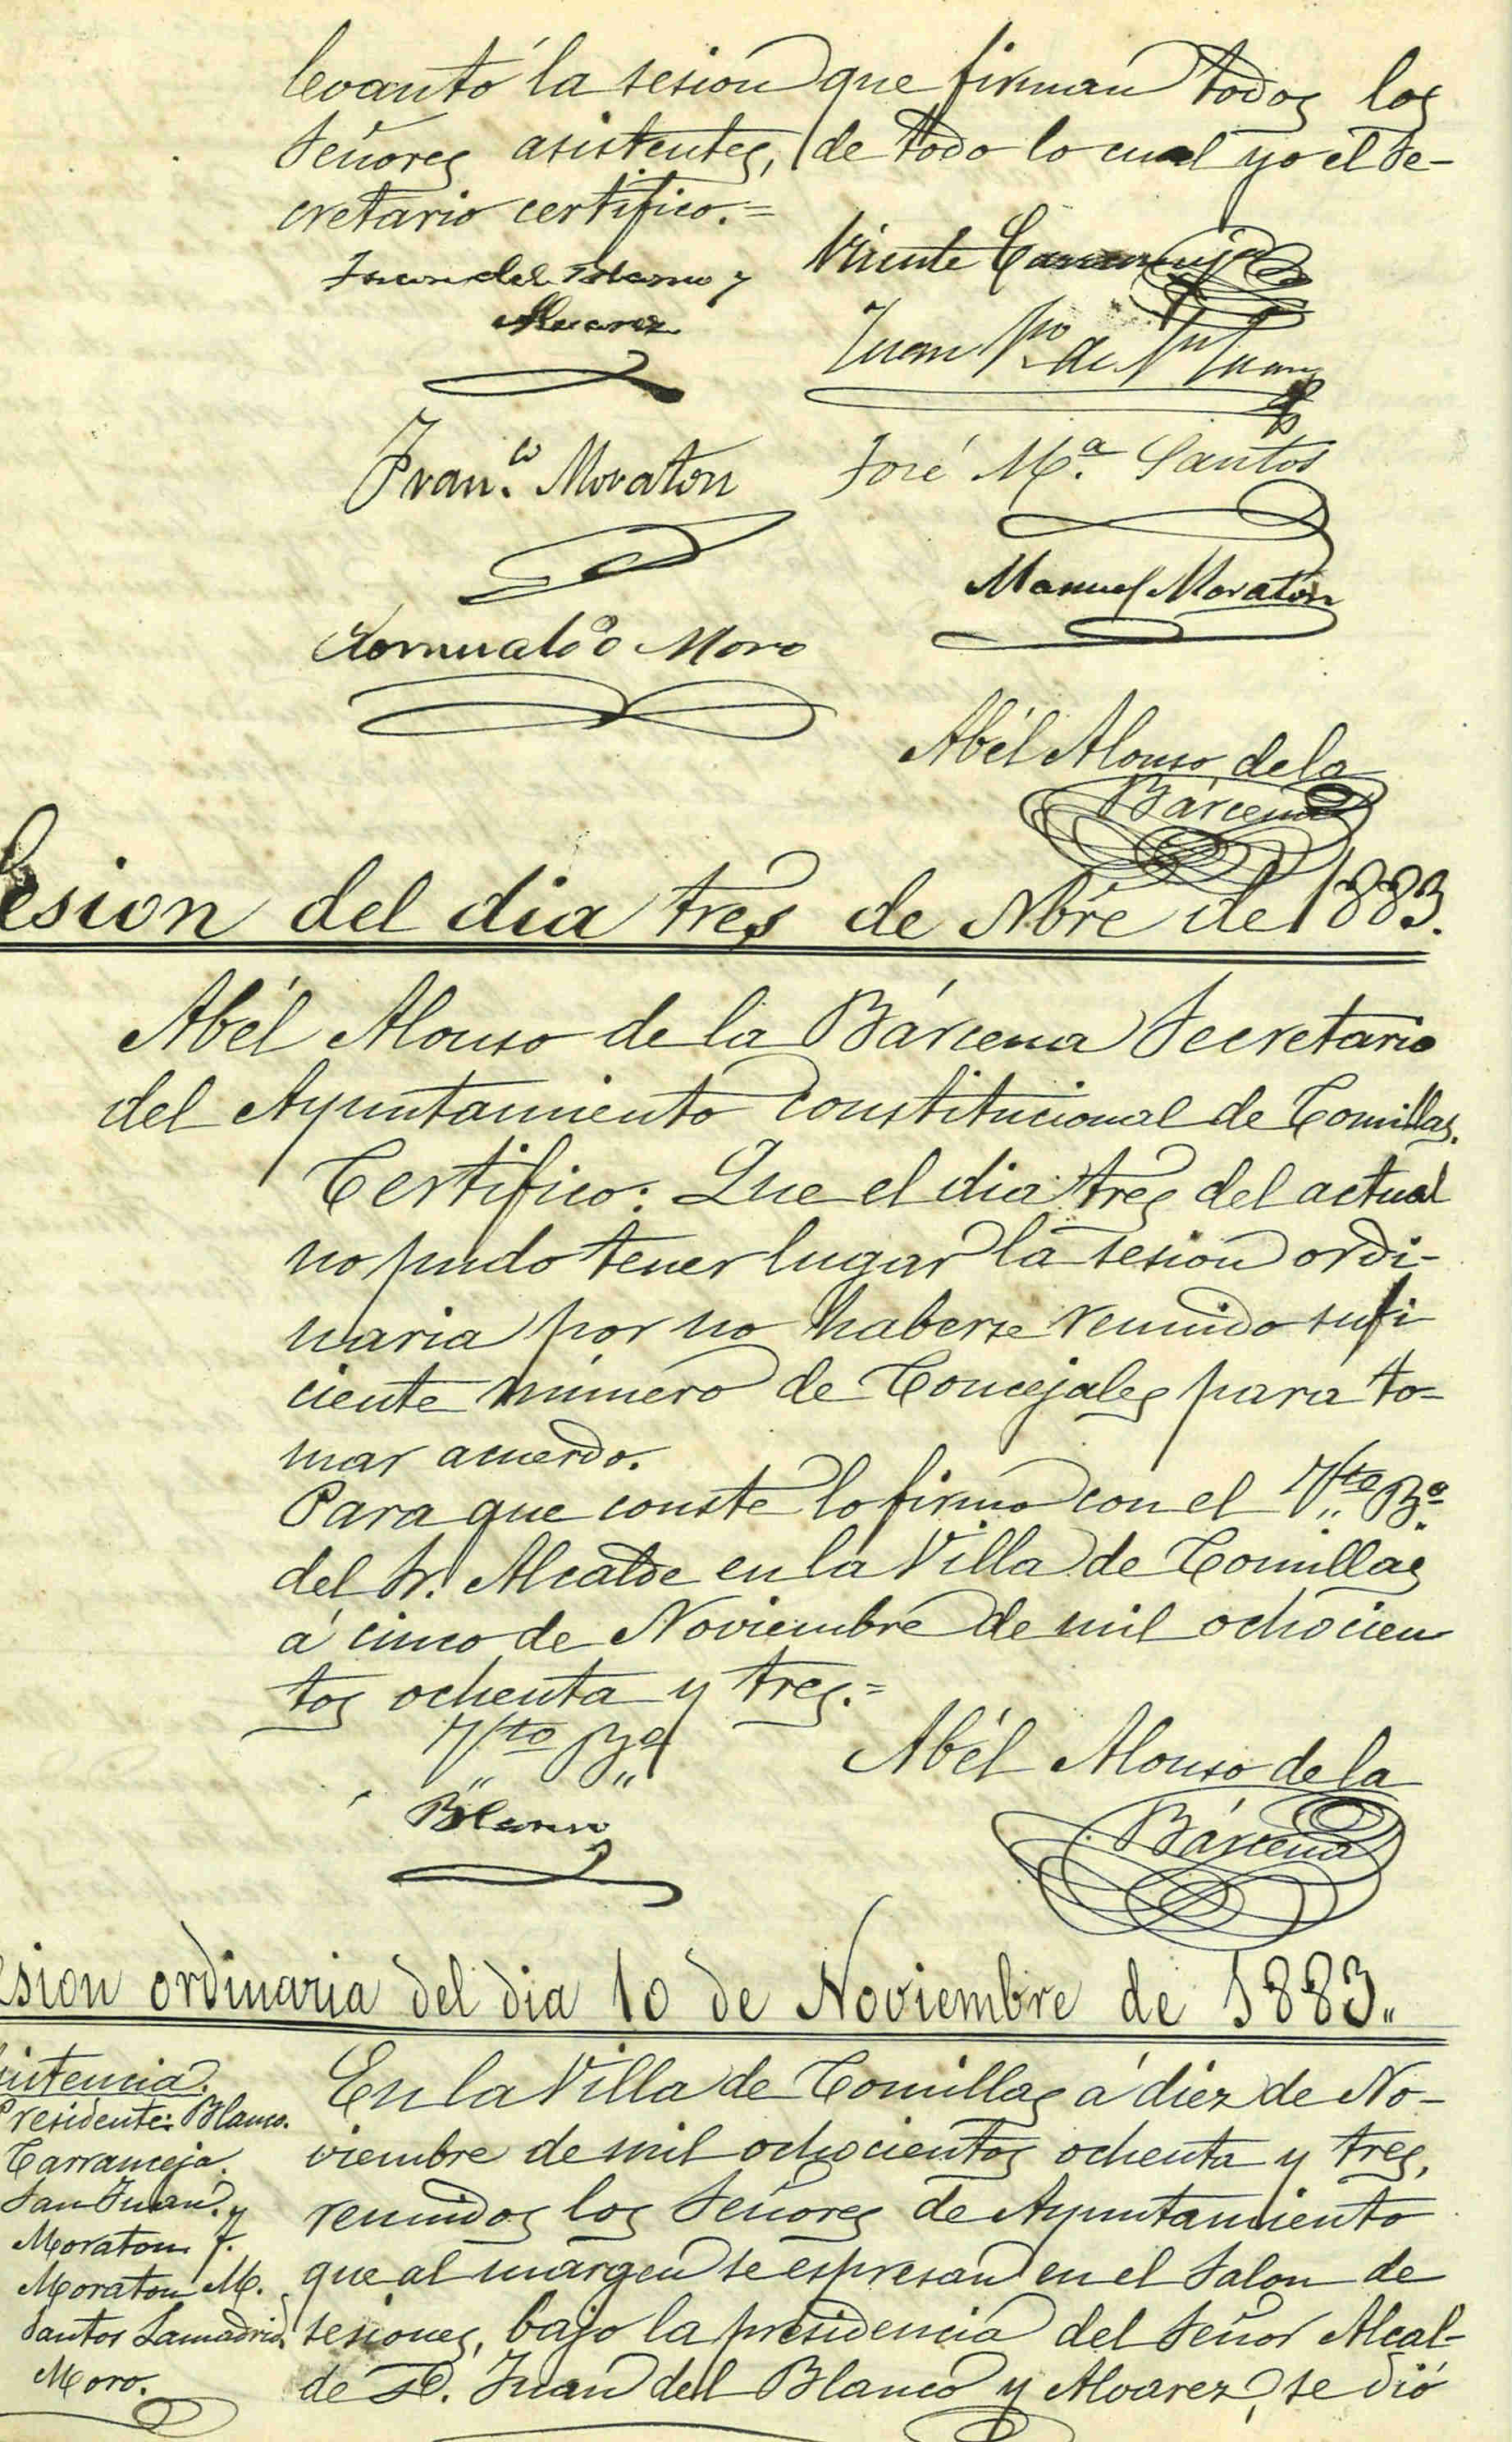 levantó la sesion que firman todos los
Señores asistentes, de todo lo cual yo el Se-
cretario certifico.=
Juan del Blanco y
Alvarez
Vicente Carranceja
Juan
de
Juan
Fran.co Moraton
José M.ª Santos
Manuel Moratón
Romualdo Moro
Abél Alonso de la
Bárcena
esion del dia tres de Nbre de 1883.
Abél Alonso de la Bárcena Secretario
del Ayuntamiento Constitucional de Comillas.
Certifico: Que el dia tres del actual
no pudo tener lugar la sesion ordi-
naria por no haberse reunido sufi
ciente número de Concejales para to-
mar acuerdo.
Para que conste lo firmo con el V.to B.º
del Sr. Alcalde en la Villa de Comillas
á cinco de Noviembre de mil ochocien
tos ochenta y tres.=
V.to B.º
Blanco
Abél Alonso de la
Bárcena
esion ordinaria del dia 10 de Noviembre de 1883.
istencia.
Presidente: Blanco.
Carranceja.
San Juan. y
Moraton f.
Moraton M.
Santos Lamadrid.
Moro.
En la Villa de Comillas á diez de No-
viembre de mil ochocientos ochenta y tres,
reunidos los Señores de Ayuntamiento
que al margen se espresan en el Salon de
sesiones, bajo la presidencia del Señor Alcal-
de D. Juan del Blanco y Alvarez, se dió